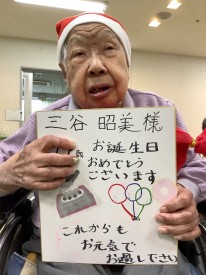 三谷 昭美 様
お誕生日
おめでとう
ございます
これからも
お元気で
お過し下さい